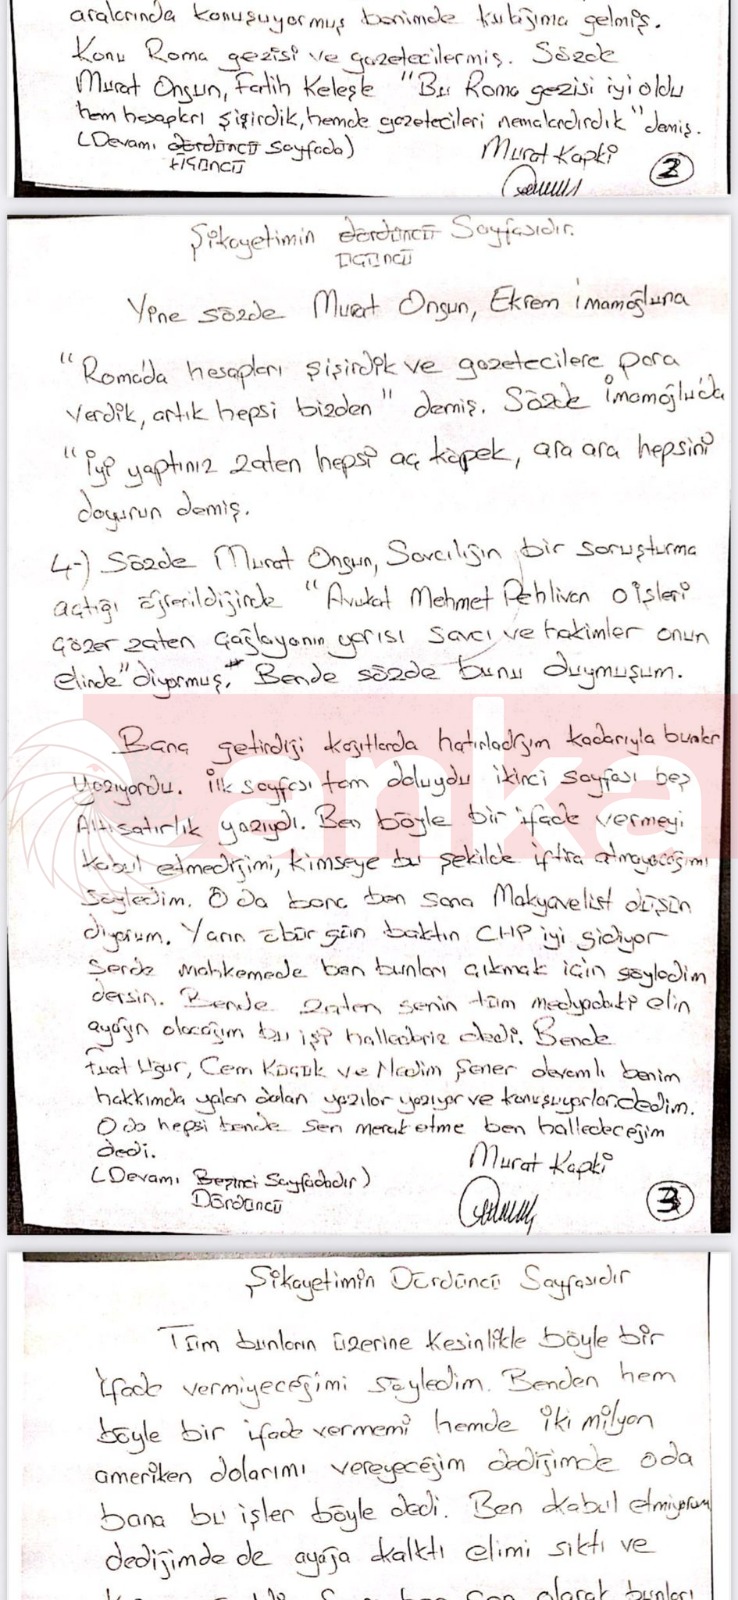 aralarında konuşuyormuş benimde kulağıma gelmiş.
Konu Roma gezisi ve gazetecilermiş. Sözde
Murat Ongun, Fatih Keleşle "Bu Roma gezisi iyi oldu
hem hesapları şişirdik, hemde gazetecileri nemalandırdık" demiş.
(Devamı dördüncü sayfada)
üçüncü
Murat Kapki
2
Şikayetimin dördüncü Sayfasıdır.
üçüncü
Yine sözde Murat Ongun, Ekrem İmamoğluna
"Roma'da hesapları şişirdik ve gazetecilere para
verdik, artık hepsi bizden" demiş. Sözde İmamoğlu'da
"iyi yaptınız zaten hepsi aç köpek, ara ara hepsini
doyurun demiş.
4-) Sözde Murat Ongun, Savcılığın bir soruşturma
açtığı öğrenildiğinde "Avukat Mehmet Pehlivan o işleri
çözer zaten Çağlayanın yarısı savcı ve hakimler onun
elinde" diyormuş. Bende sözde bunu duymuşum.
Bana getirdiği kağıtlarda hatırladığım kadarıyla bunlar
yazıyordu. İlk sayfası tam doluydu ikinci sayfası beş
Altı satırlık yazıydı. Ben böyle bir ifade vermeyi
kabul etmediğimi, kimseye bu şekilde iftira atmayacağımı
söyledim. O da bana ben sana Makyavelist düşün
diyorum. Yarın öbür gün baktın CHP iyi gidiyor
sende mahkemede ben bunları çıkmak için söyledim
dersin. Bende zaten senin tüm medyadaki elin
ayağın olacağım bu işi hallederiz dedi. Bende
Fuat Uğur, Cem Küçük ve Nedim Şener devamlı benim
hakkımda yalan dolan yazılar yazıyor ve konuşuyorlar dedim.
O da hepsi bende sen merak etme ben halledeceğim
dedi.
(Devamı Beşinci Sayfadadır)
Dördüncü
Murat Kapki
3
Şikayetimin Dördüncü Sayfasıdır
Tüm bunların üzerine kesinlikle böyle bir
ifade vermiyeceğimi söyledim. Benden hem
böyle bir ifade vermemi hemde iki milyon
ameriken dolarımı vereyeceğim dediğimde oda
bana bu işler böyle dedi. Ben kabul etmiyorum
dediğimde de ayağa kalktı elimi sıktı ve
olarak bunları
anka